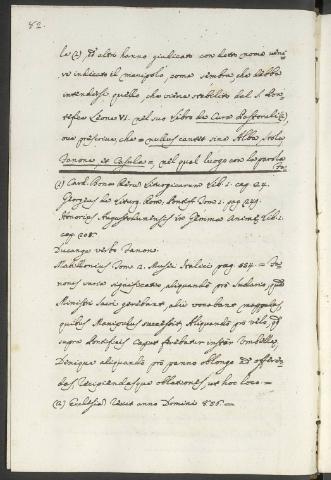 82.
le (1), ed altri hanno giudicato con detto nome veni-
re indicato il manipolo, come sembra che debba
intendersi quello, che viene stabilito dal S. Pon-
tefice Leone VI. nel suo Libro de Cura Pastorali (2)
ove prescrive, che = nullus cantet sine Alba, Stola,
Fanone, et Casula =, nel qual luogo con la parola
Fa-
(1) Card. Bona Rerum Liturgicarum Lib. 1. pag. 24.
Georgius de Liturg. Rom. Pontif. Tom. 1. pag. 249.
Honorius Augustodunensis in Gemma Animæ Lib. 1.
cap. 208.
Ducange verbo Fanone.
Mabillonius Tom. 2. Musei Italici pag. 554. = Fa-
nones varia significatio, aliquando pro Sudario, quod
Ministri Sacri gerebant, alii vocabant mappulas,
quibus Manipulus successit, Aliquando pro velo, quod
supra Pontificis Caput funditur instar
Denique aliquando pro panno oblongo ad offeren-
das, recipiendasque oblationes, ut hoc loco. =
(2) Ecclesiam rexit anno Domini 886. =